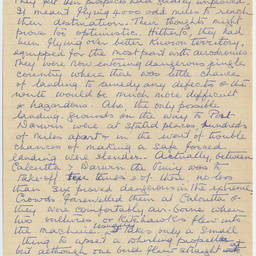 They felt their prospects had greatly improved.
It meant flying 4000 odd miles to reach
their destination. Their thoughts might
prove too optimistic. Hitherto, they had
been flying over better known territory,
equipped for the most part with aerodromes
They were now entering dangerous jungle
country where there was little chance
of landing to remedy any defects & the
work would be much more difficult
& hazardous. Also the only possible
landing grounds on the way to Port
Darwin were at stated places hundreds
of miles apart & in the event of trouble
chances of making a safe forced
landing were slender. Actually, between
Calcutta & Darwin the Vimy was to
take-off ten times & of these no less
than six proved dangerous in the extreme
Crowds farewelled them at Calcutta &
they were comfortably air-borne when
two vultures or Kitehawks flew into
the machine. Usually it takes only a small
thing to upset a whirling propeller
but although one bird flew straight into